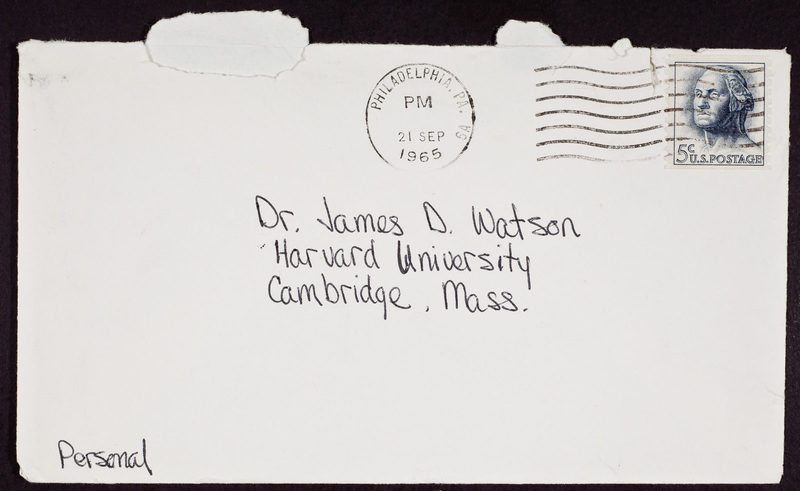 PHILADELPHIA, PA.
PM
21 SEP
1965
5c U.S. POSTAGE
Dr. James D. Watson
Harvard University
Cambridge, Mass.
Personal